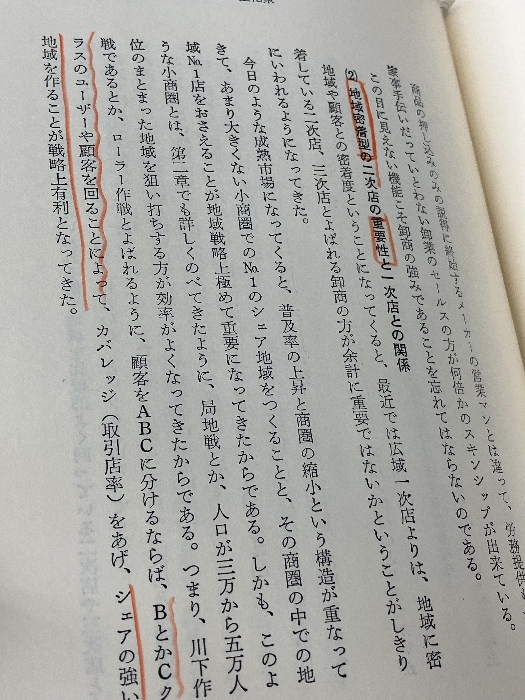 商品の押し込みのみの説得に終始するメーカーの営業マンとは違って、労務提供も
家事手伝いだっていとわない卸業のセールスの方が何倍かのスキンシップが出来ている。
この目に見えない機能こそ卸商の強みであることを忘れてはならないのである。
(2) 地域密着型の二次店の重要性と一次店との関係
地域や顧客との密着度ということになってくると、最近では広域一次店よりは、地域に密
着している二次店、三次店とよばれる卸商の方が余計に重要ではないかということがしきり
にいわれるようになってきた。
今日のような成熟市場になってくると、普及率の上昇と商圏の縮小という構造が重なって
きて、あまり大きくない小商圏での№1のシェア地域をつくることと、その商圏の中での地
域№1店をおさえることが地域戦略上極めて重要になってきたからである。しかも、このよ
うな小商圏とは、第一章でも詳しくのべてきたように、局地戦とか、人口が三万から五万人
位のまとまった地域を狙い打ちする方が効率がよくなってきたからである。つまり、川下作
戦であるとか、ローラー作戦とよばれるように、顧客をABCに分けるならば、BとかCク
ラスのユーザーや顧客を回ることによって、カバレッジ（取引店率）をあげ、シェアの強い
地域を作ることが戦略上有利となってきた。